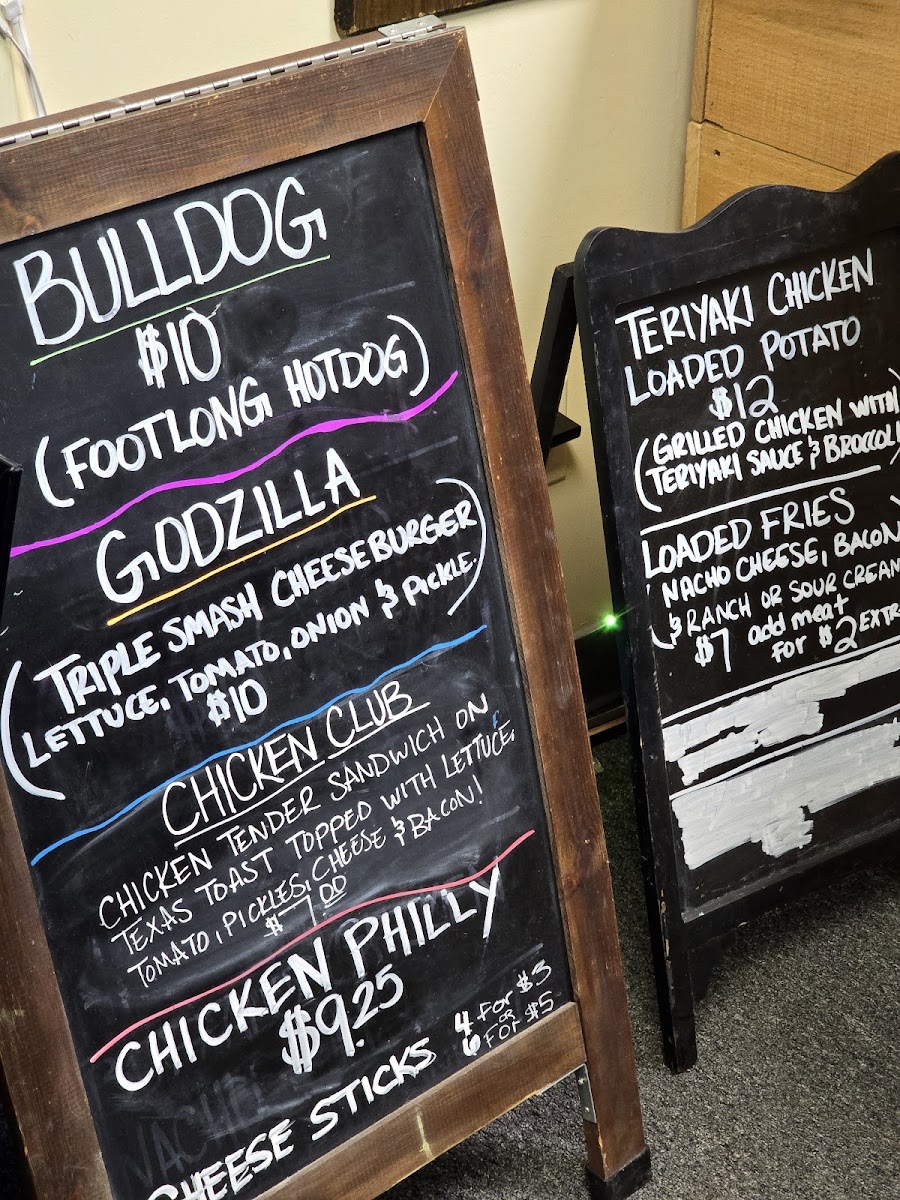 BULLDOG
$10
(FOOTLONG HOTDOG)
GODZILLA
(TRIPLE SMASH CHEESEBURGER
LETTUCE, TOMATO, ONION & PICKLE.)
$10
CHICKEN CLUB
CHICKEN TENDER SANDWICH ON
TEXAS TOAST TOPPED WITH LETTUCE,
TOMATO, PICKLES, CHEESE & BACON!
$7.00
CHICKEN PHILLY
$9.25
CHEESE STICKS
4 for $3
OR
6 FOR $5
TERIYAKI CHICKEN
LOADED POTATO
$12
(GRILLED CHICKEN WITH
TERIYAKI SAUCE & BROCCOLI)
LOADED FRIES
(NACHO CHEESE, BACON
& RANCH OR SOUR CREAM)
$7 add meat
FOR $2 EXTRA